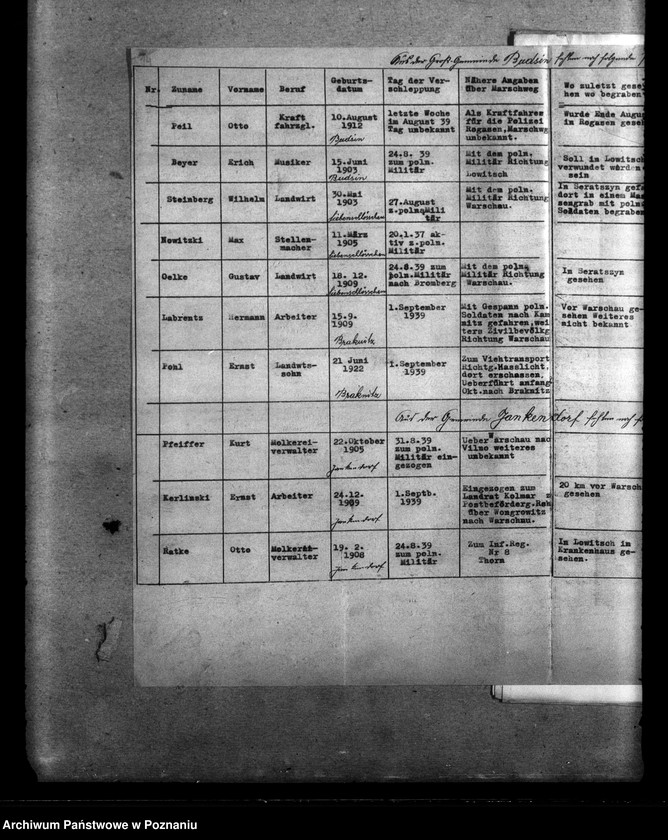 Aus der Groß-Gemeinde Budsin fehlen noch folgende
Nr. Zuname Vorname Beruf Geburts-datum Tag der Ver-schleppung Nähere Angaben über Marschweg Wo zuletzt gese hen wo begraben
Peil Otto Kraft fahrzgl. 10.August 1912 Budsin letzte Woche im August 39 Tag unbekannt Als Kraftfahrer für die Polizei Rogasen,Marschwg unbekannt. Wurde Ende Augus in Rogasen geseh
Beyer Erich Musiker 15.Juni 1903 Budsin 24.8. 39 zum poln. Militär Mit dem poln. Militär Richtung Lowitsch Soll in Lowitsch verwundet worden sein
Steinberg Wilhelm Landwirt 30.Mai 1903 27.August z.polnMili tär Mit dem poln. Militär Richtung Warschau. In Seratszyn gefa dort in einem Mas sengrab mit poln. Soldaten begraben
Nowitzki Max Stellen-macher 11.März 1905 20.1.37 ak-tiv z.poln. Militär
Oelke Gustav Landwirt 18. 12. 1909 24.8.39 zum poln.Militär nach Bromberg Mit dem poln. Militär Richtung Warschau. In Seratszyn gesehen
Labrentz Hermann Arbeiter 15.9. 1909 Braknitz 1.September 1939 Mit Gespann poln. Soldaten nach Kam mits gefahren,wei ters Zivilbevölkg Richtung Warschau Vor Warschau ge-sehen Weiteres nicht bekannt
Pohl Ernst Landwts-sohn 21 Juni 1922 Braknitz 1.September 1939 Zum Viehtransport Richtg.Hasslicht, dort erschossen, Ueberführt anfang Okt.nach Braknitz
Aus der Gemeinde Jankendorf fehlen noch
Pfeiffer Kurt Molkerei-verwalter 22.Oktober 1905 Jankendorf 31.8.39 zum poln. Militär ein-gezogen Ueber Warschau nac Vilno weiteres unbekannt
Karlinski Ernst Arbeiter 24.12. 1909 Jankendorf 1.Septb. 1939 Eingezogen zum Landrat Kolmar z Postbeförderg.Rch über Wongrowitz nach Warschau. 20 km vor Warsch gesehen
Ratke Otto Molkerei-verwalter 19. 2. 1908 Jankendorf 24.8.39 zum poln. Militär Zum Inf.Reg. Nr 8 Thorn In Lowitsch im Krankenhaus ge-sehen.
Archiwum Państwowe w Poznaniu